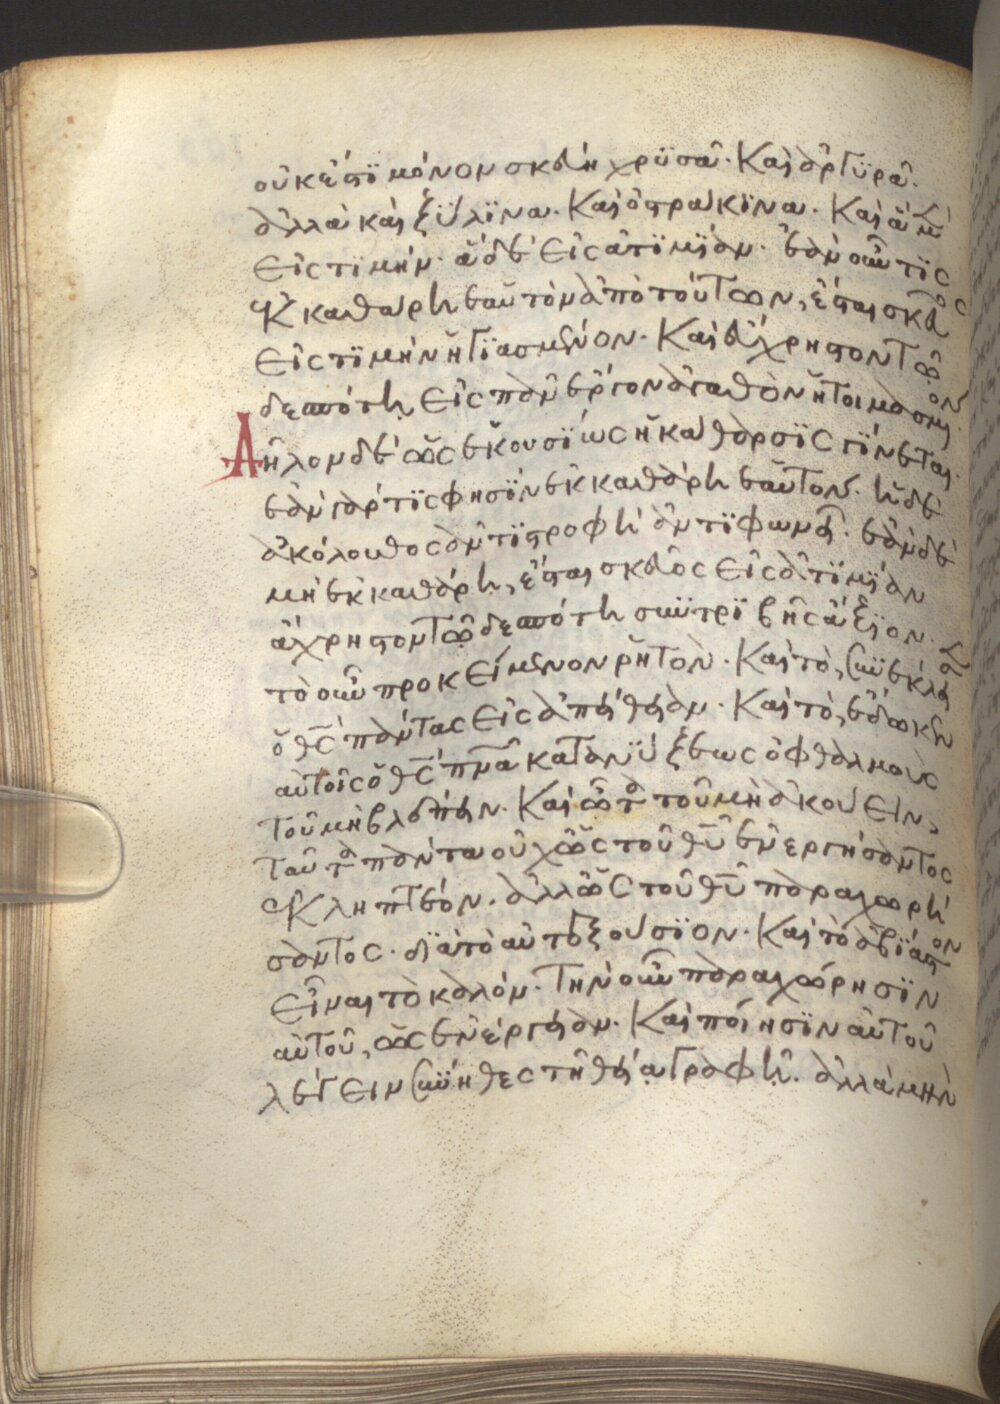 οὐκ ἔστι μόνον σκεύη χρϋσᾶ· Καὶ ἀργϋρᾶ·
ἀλλὰ καὶ ξΰλϊνα· Καὶ ὀστράκϊνα· Καὶ ἃ μὲν
εἰς τϊμήν· ἃ δὲ εἰς ἀτϊμΐαν· ἐὰν οὖν τϊς
ἐκκαθάρῃ ἑαυτὸν ἀπὸ τούτων, ἔσται σκεῦος
εἰς τϊμὴν ἡγϊασμένον· Καὶ εὔχρηστον τῷ
δεσπότῃ εἰς πᾶν ἔργον ἀγαθὸν ἡτοιμασμένον
Δῆλον δὲ ὡς ἑκουσΐως ἡ κάθαρσϊς γΐνεται·
ἐὰν γάρ τϊς φησὶν ἐκκαθάρῃ ἑαυτόν· ἡ δὲ
ἀκόλουθος ἀντϊστροφὴ ἀντϊφωνεῖ· ἐὰν δὲ
μὴ ἐκκαθάρῃ, ἔσται σκεῦος εἰς ἀτϊμΐαν
ἄχρηστον τῷ δεσπότῃ συντρϊβῆς ἄξϊον·
τὸ οὖν προκείμενον ῥητόν· Καὶ τὸ, συνέκλεισεν
ὁ θς πάντας εἰς ἀπείθειαν· Καὶ τὸ, ἔδωκεν
αὐτοῖς ὁ θς πνα κατανΰξεως ὀφθαλμοὺς
τοῦ μὴ βλέπειν· Καὶ ὦτα τοῦ μὴ ἀκούειν,
ταῦτα πάντα οὐχ ὡς τοῦ θυ ἐνεργήσαντος
ἐκληπτέον· ἀλλ' ὡς τοῦ θυ παραχωρή
σαντος· δϊὰ τὸ αὐτεξούσϊον· Καὶ τὸ ἀβΐαστον
εἶναι τὸ καλόν· Τὴν οὖν παραχώρησϊν
αὐτοῦ, ὡς ἐνέργειαν· Καὶ ποίησϊν αὐτοῦ
λέγειν σύνηθες τῇ θείᾳ γραφῇ· ἀλλὰ μὴν